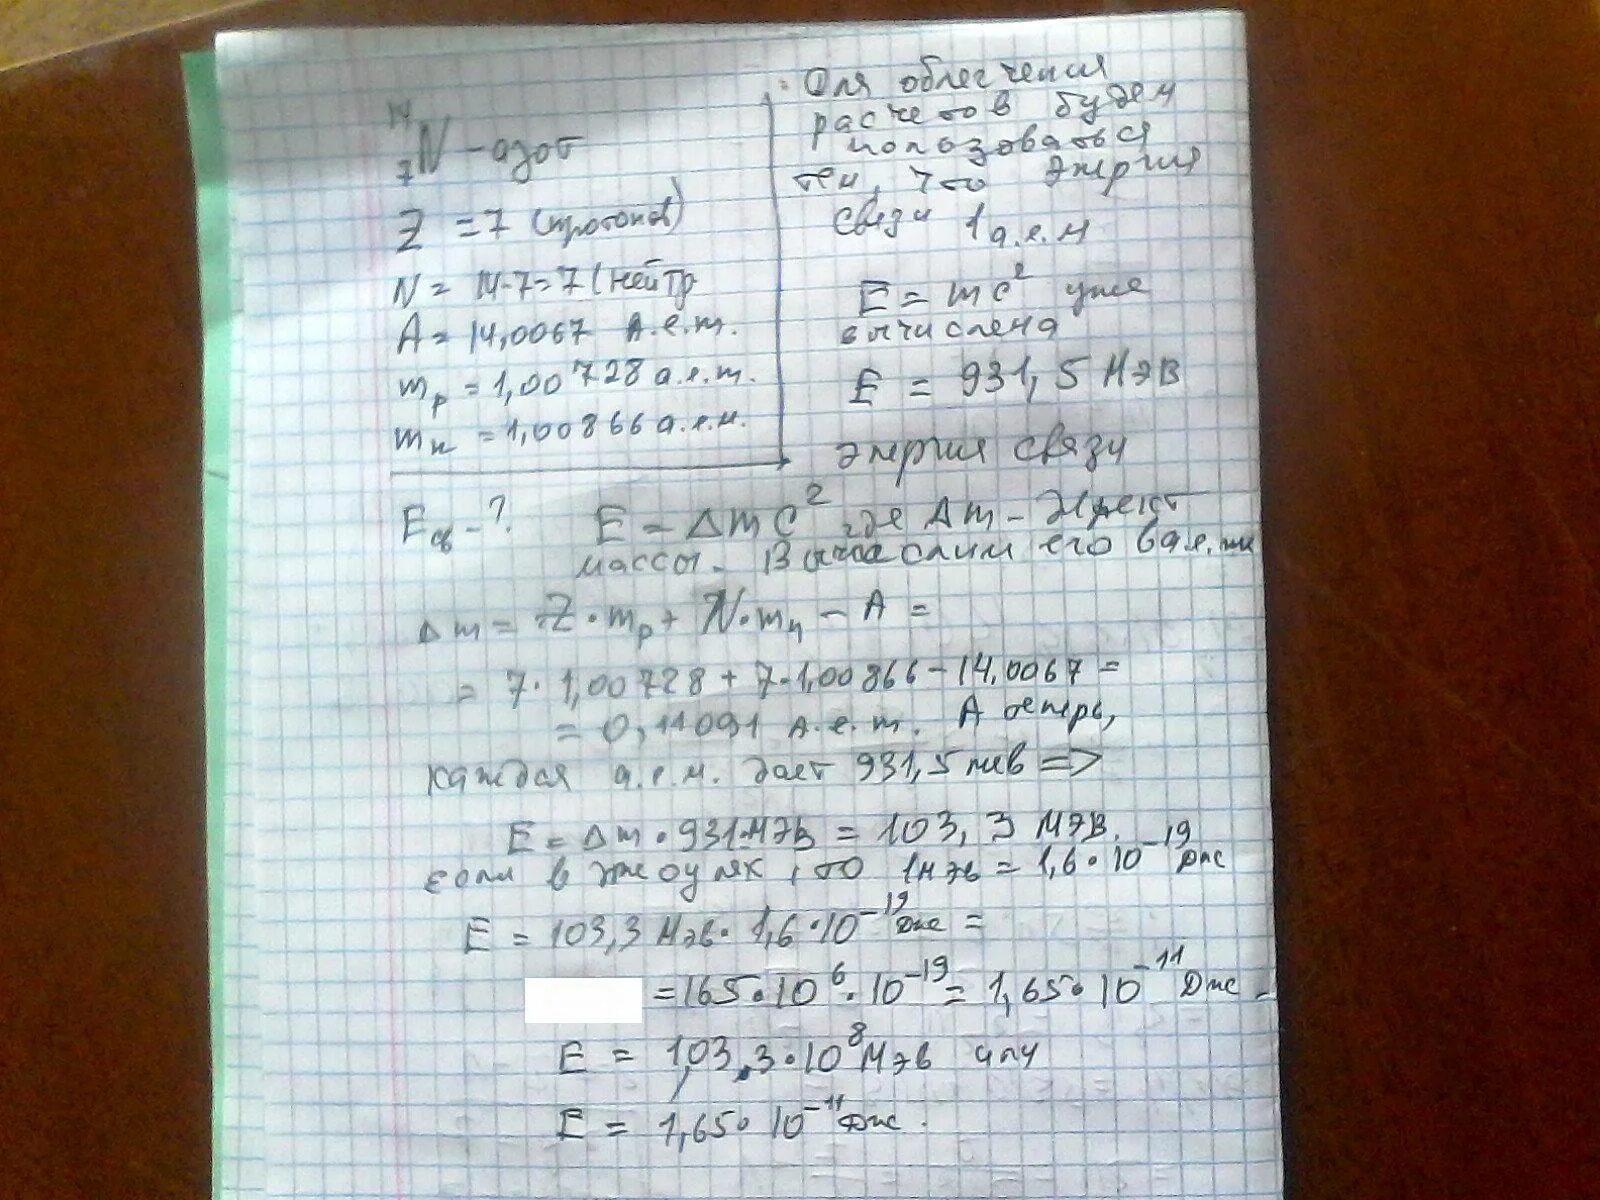 14
7 N - азот
Z = 7 (протонов)
N = 14-7=7 (нейтр
A = 14,0067 а.е.m.
mp = 1,00728 а.е.m.
mн = 1,00866 а.е.м.
Для облегчения
расчетов будем
пользоваться
тем, что энергия
связи 1 а.е.м
E = mc² уже
вычислена
E = 931,5 МэВ
энергия связи
Eсв - ?
E = Δmc² где Δm -
массы. Вычислим его в а.е.м
Δm = Z·mp + N·mn - A =
= 7·1,00728 + 7·1,00866 - 14,0067 =
= 0,11091 а.е.m. А теперь,
каждая а.е.м. дает 931,5 мев =>
E = Δm·931·МэВ = 103,3 МэВ.
если в джоулях, то 1мэв = 1,6·10⁻¹⁹ Дж
E = 103,3 Мэв·1,6·10⁻¹⁹ Дж =
=165·10⁶·10⁻¹⁹ = 1,65·10⁻¹¹ Дж
E = 1,03,3·10⁸ Мэв или
E = 1,65·10⁻¹¹ Дж.